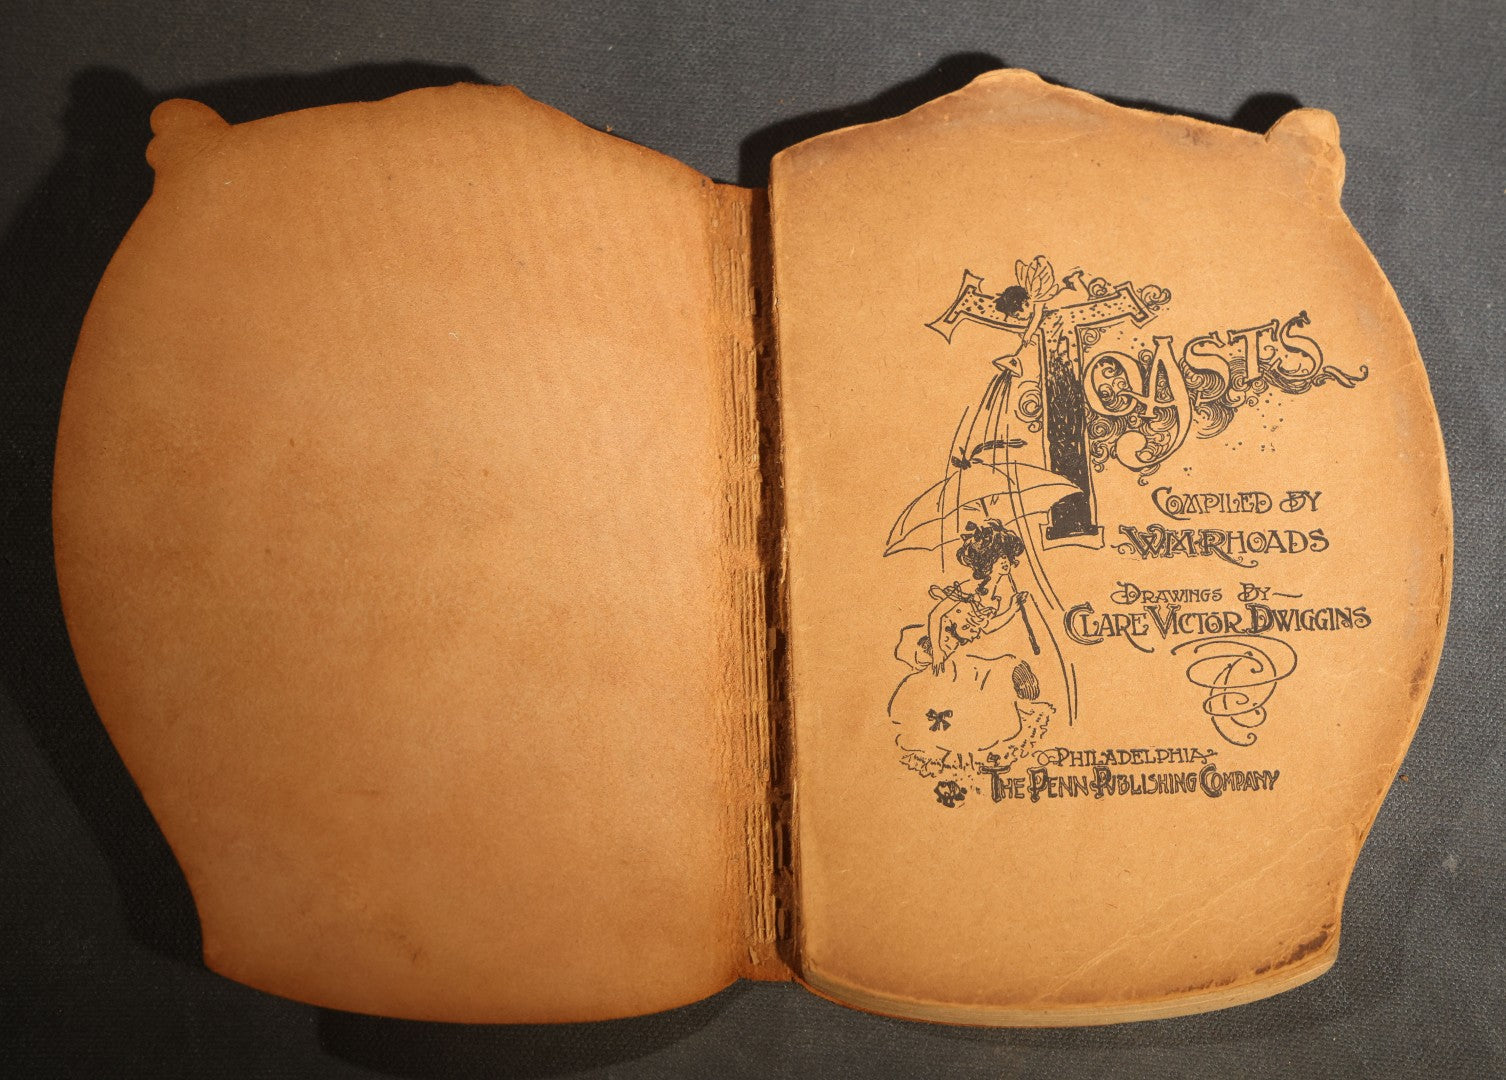 TOASTS
COMPILED BY
WM RHOADS
DRAWINGS BY—
CLARE VICTOR DWIGGINS
PHILADELPHIA
THE PENN PUBLISHING COMPANY